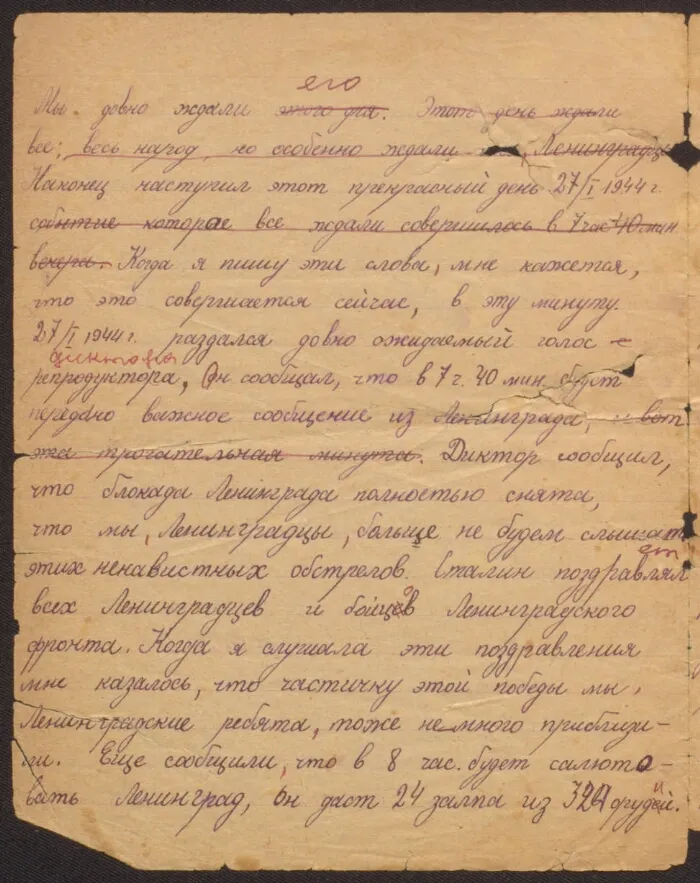 его
Мы давно ждали этого дня. Этот день ждали
все; весь народ, но особенно ждали Ленинградцы
Наконец наступил этот прекрасный день 27/I 1944 г.
событие которае все ждали совершилось в 7 час 40 мин
вечера. Когда я пишу эти слова, мне кажется,
что это совершается сейчас, в эту минуту.
27/I 1944 г. раздался довно ожидаемый голос
диктора
репродуктора, Он сообщал, что в 7 ч. 40 мин. будет
передано важное сообщение из Ленинграда, вот
эта трогательная минута. Диктор сообщил,
что блокада Ленинграда полностью снята,
что мы, Ленинградцы, больше не будем слышать
этих ненавистных обстрелов. Сталин поздравлял
всех Ленинградцев и бойцов Ленинградского
фронта. Когда я слушала эти поздравления
мне казалось, что частичку этой победы мы,
Ленинградские ребята, тоже немного приблизи-
ли. Еще сообщили, что в 8 час. будет салюто-
вать Ленинград, Он даст 24 залпа из орудий.